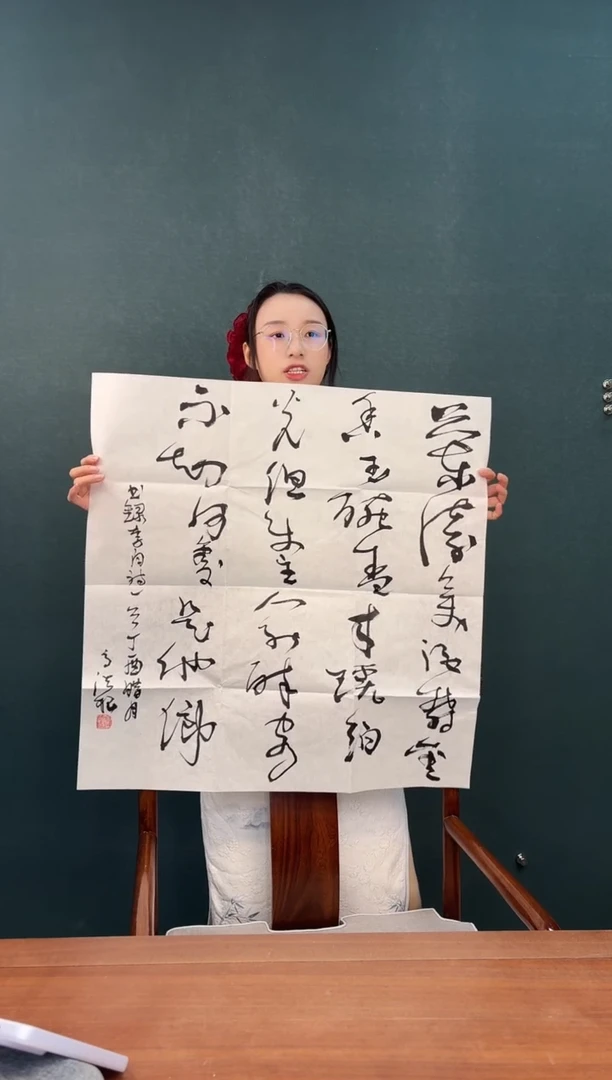 蘭陵美酒鬱金
香玉碗盛来琥珀
光但使主人能醉客
不知何處是他鄉
書録李白詩一首丁酉腊月